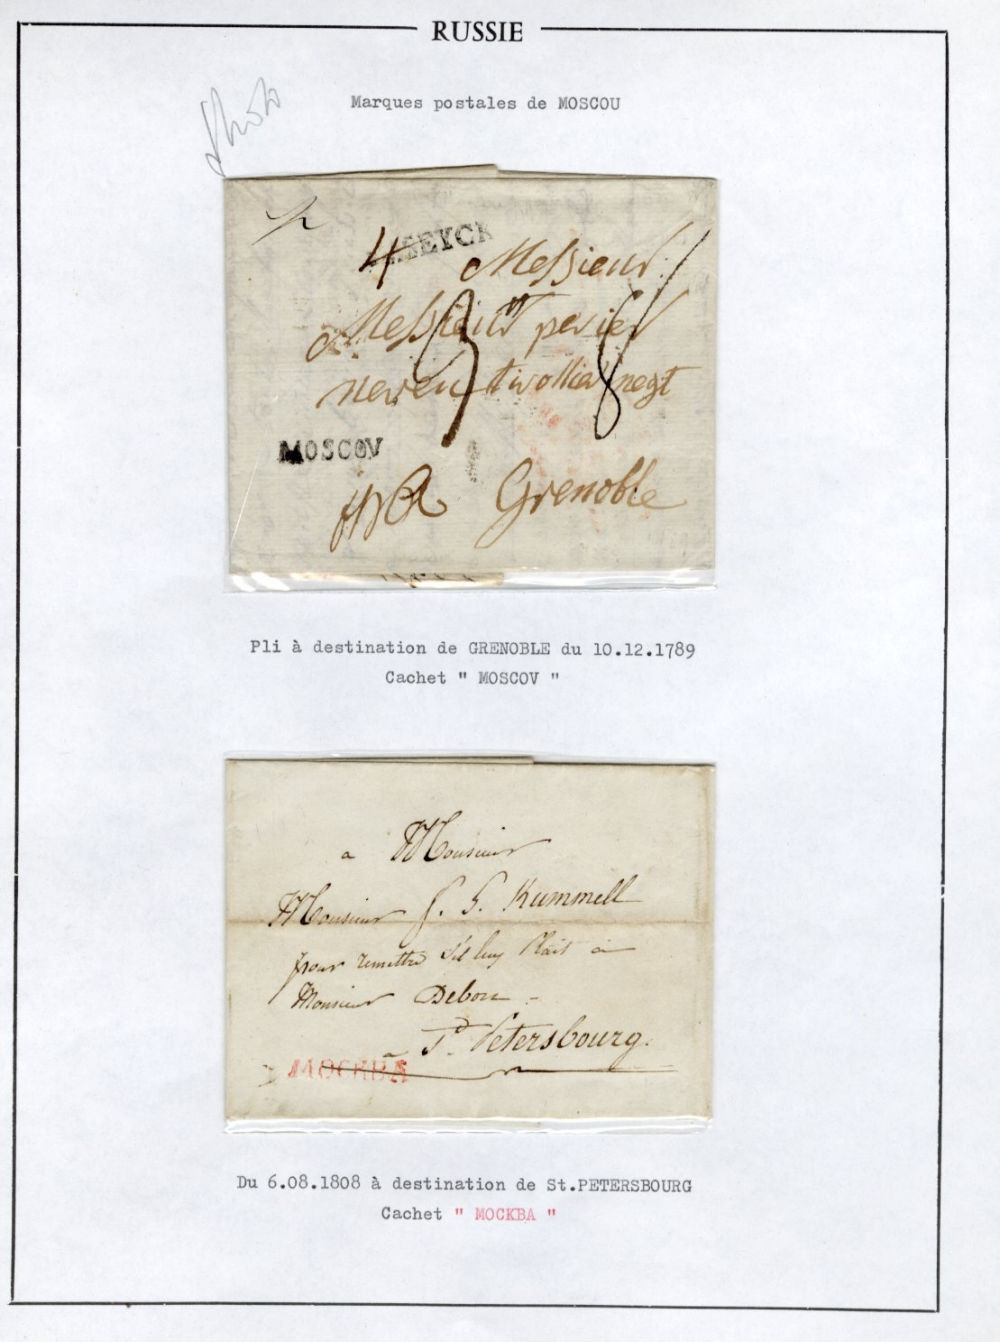 RUSSIE
Photo
Marques postales de MOSCOU
4
SEYCK
Messieurs
Messieurs perier
neveu tivollier negt
3
8
MOSCOV
Grenoble
Pli à destination de GRENOBLE du 10.12.1789
Cachet " MOSCOV "
a Monsieur
Monsieur Kummell
pour remettre s'il luy Plait à
Monsieur Debon
à St. Petersbourg.
МОСКВА
Du 6.08.1808 à destination de St.PETERSBOURG
Cachet " МОСКВА "